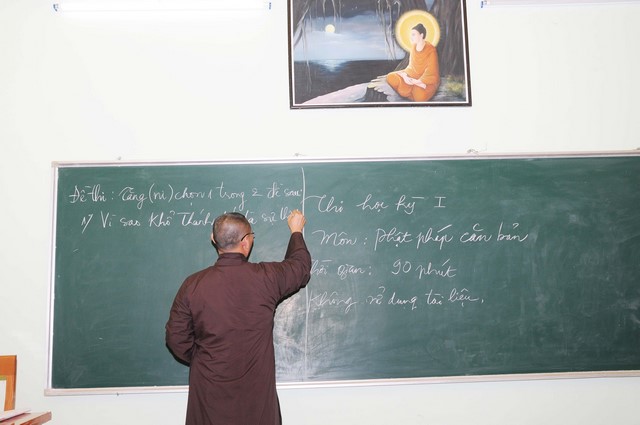 Đề thi: Tăng (ni) chọn 1 trong 2 đề sau:
1) Vì sao Khổ Thánh là sự
Thi học kỳ I
Môn: Phật pháp căn bản
Thời gian: 90 phút
Không sử dụng tài liệu.